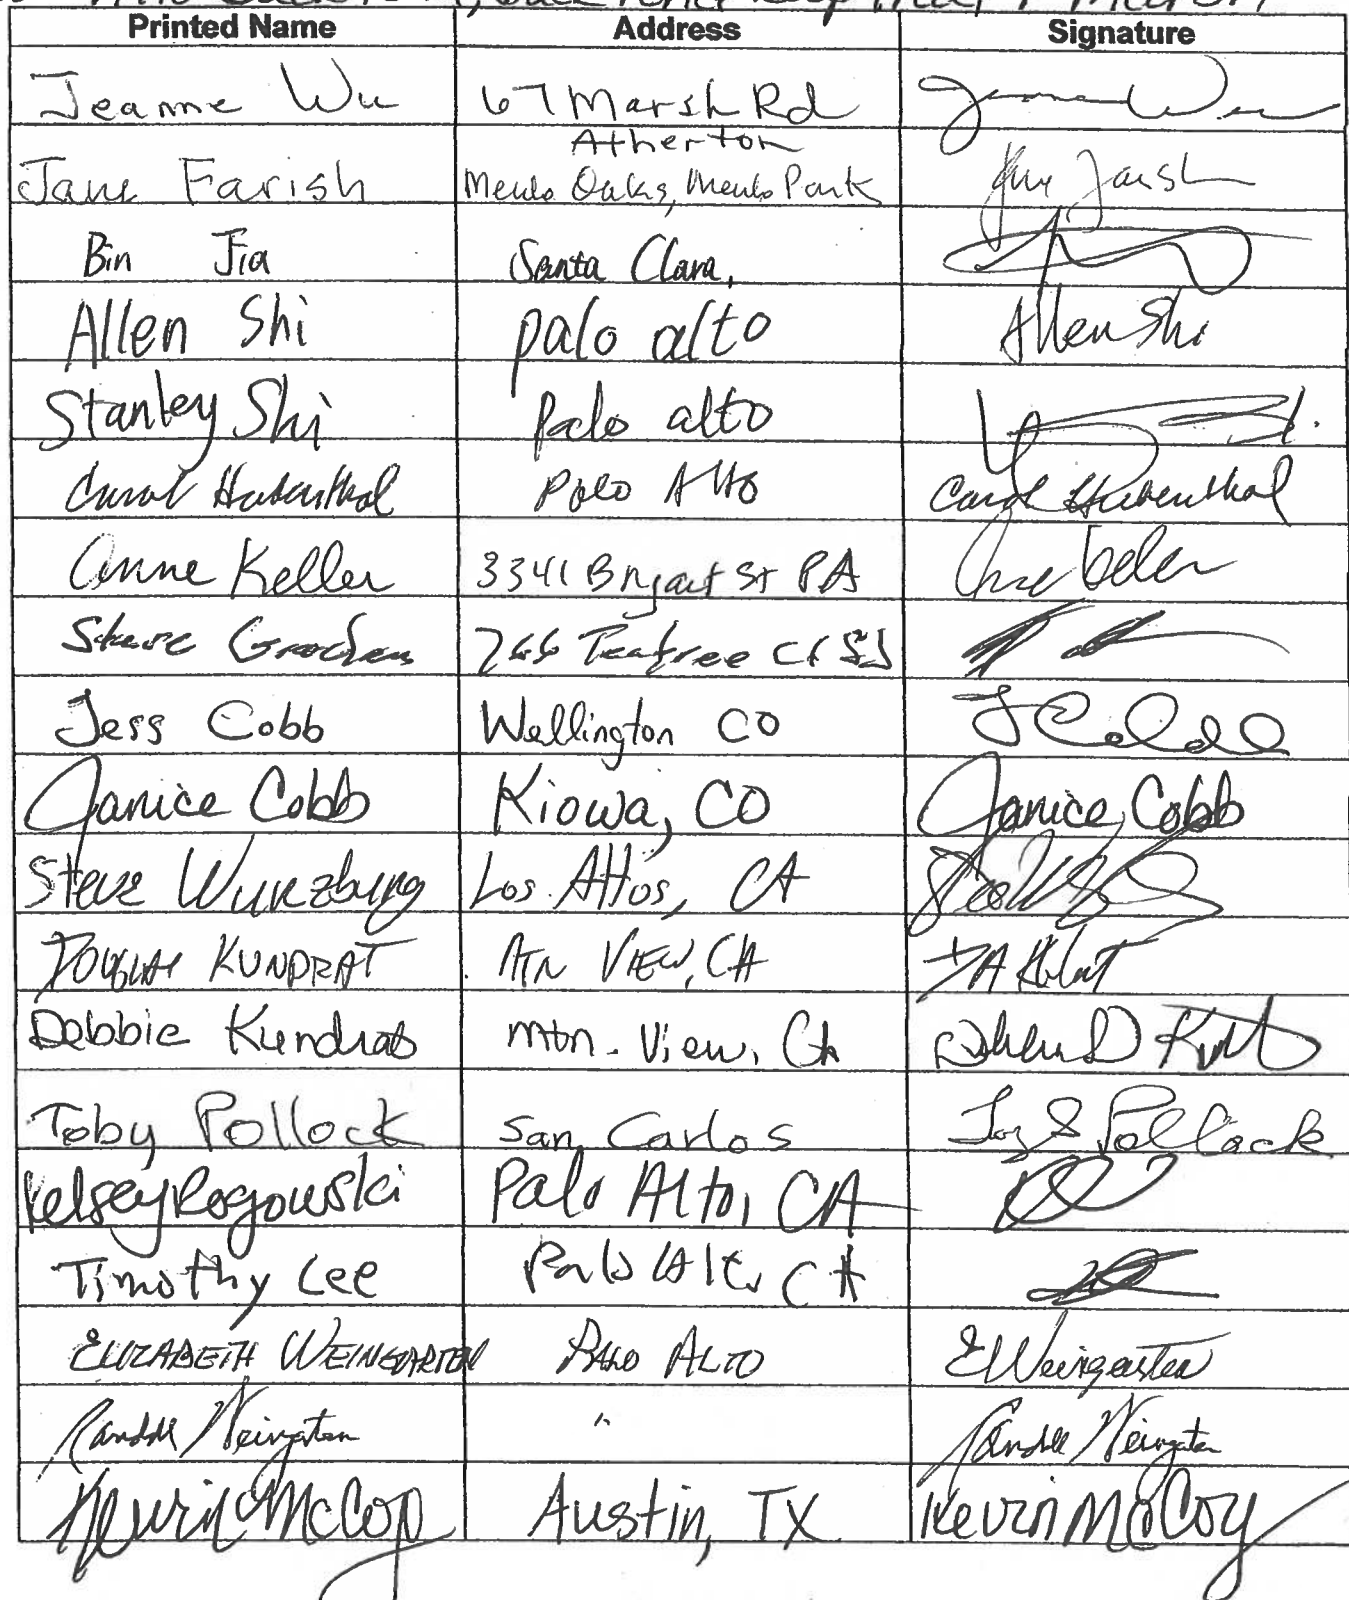 Printed Name Address Signature
Jeanne Wu 67 Marsh Rd Atherton Jeanne Wu
Jane Farish Menlo Oaks, Menlo Park Jane Farish
Bin Jia Santa Clara,
Allen Shi palo alto Allen Shi
Stanley Shi Palo alto
Carol Hubenthal Palo Alto Carol Hubenthal
Anne Keller 3341 Bryant St PA Anne Keller
Steve 766 Teatree Ct SJ
Jess Cobb Wellington CO J Cobb
Janice Cobb Kiowa, CO Janice Cobb
Steve Wurzburg Los Altos, CA
Douglas KUNDRAT MTN VIEW, CA
Debbie Kundrat Mtn. View, CA
Toby Pollock San Carlos Toby S Pollock
Kelsey Rogowski Palo Alto, CA
Timothy Lee Palo Alto, CA
ELIZABETH WEINGARTEN PALO ALTO E Weingarten
Randll Weingarten " Randll Weingarten
Kevin McCoy Austin, TX Kevin McCoy